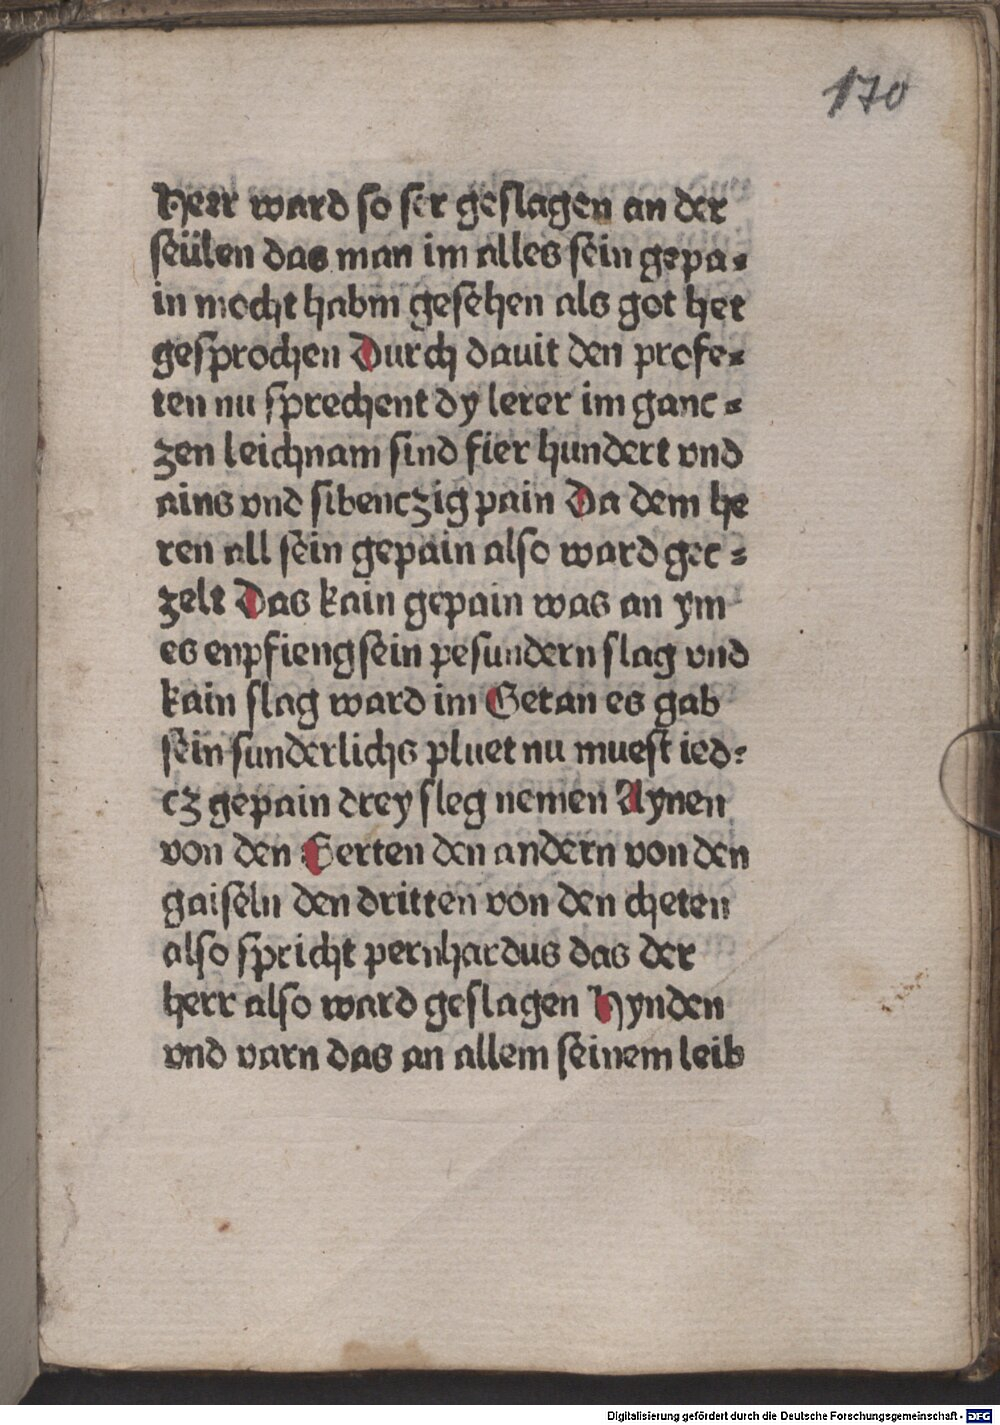 170
Herr ward so ser geslagen an der
seülen das man im alles sein gepa=
in mocht habm gesehen als got het
gesprochen Durch dauit den profe=
ten nu sprechent dy lerer im ganc=
zen leichnam sind fier hundert vnd
ains vnd sibenczig pain Da dem he
ren all sein gepain also ward gec=
zelt Das kain gepain was an ym
es enpfieng sein pesundern slag vnd
kain slag ward im Getan es gab
sein sunderlichs pluet nu muest ied=
cz gepain drey sleg nemen Aynen
von den Gerten den andern von den
gaiseln den dritten von den cheten
also spricht pernhardus das der
herr also ward geslagen Hynden
vnd varn das an allem seinem leib
Digitalisierung gefördert durch die Deutsche Forschungsgemeinschaft - DFG